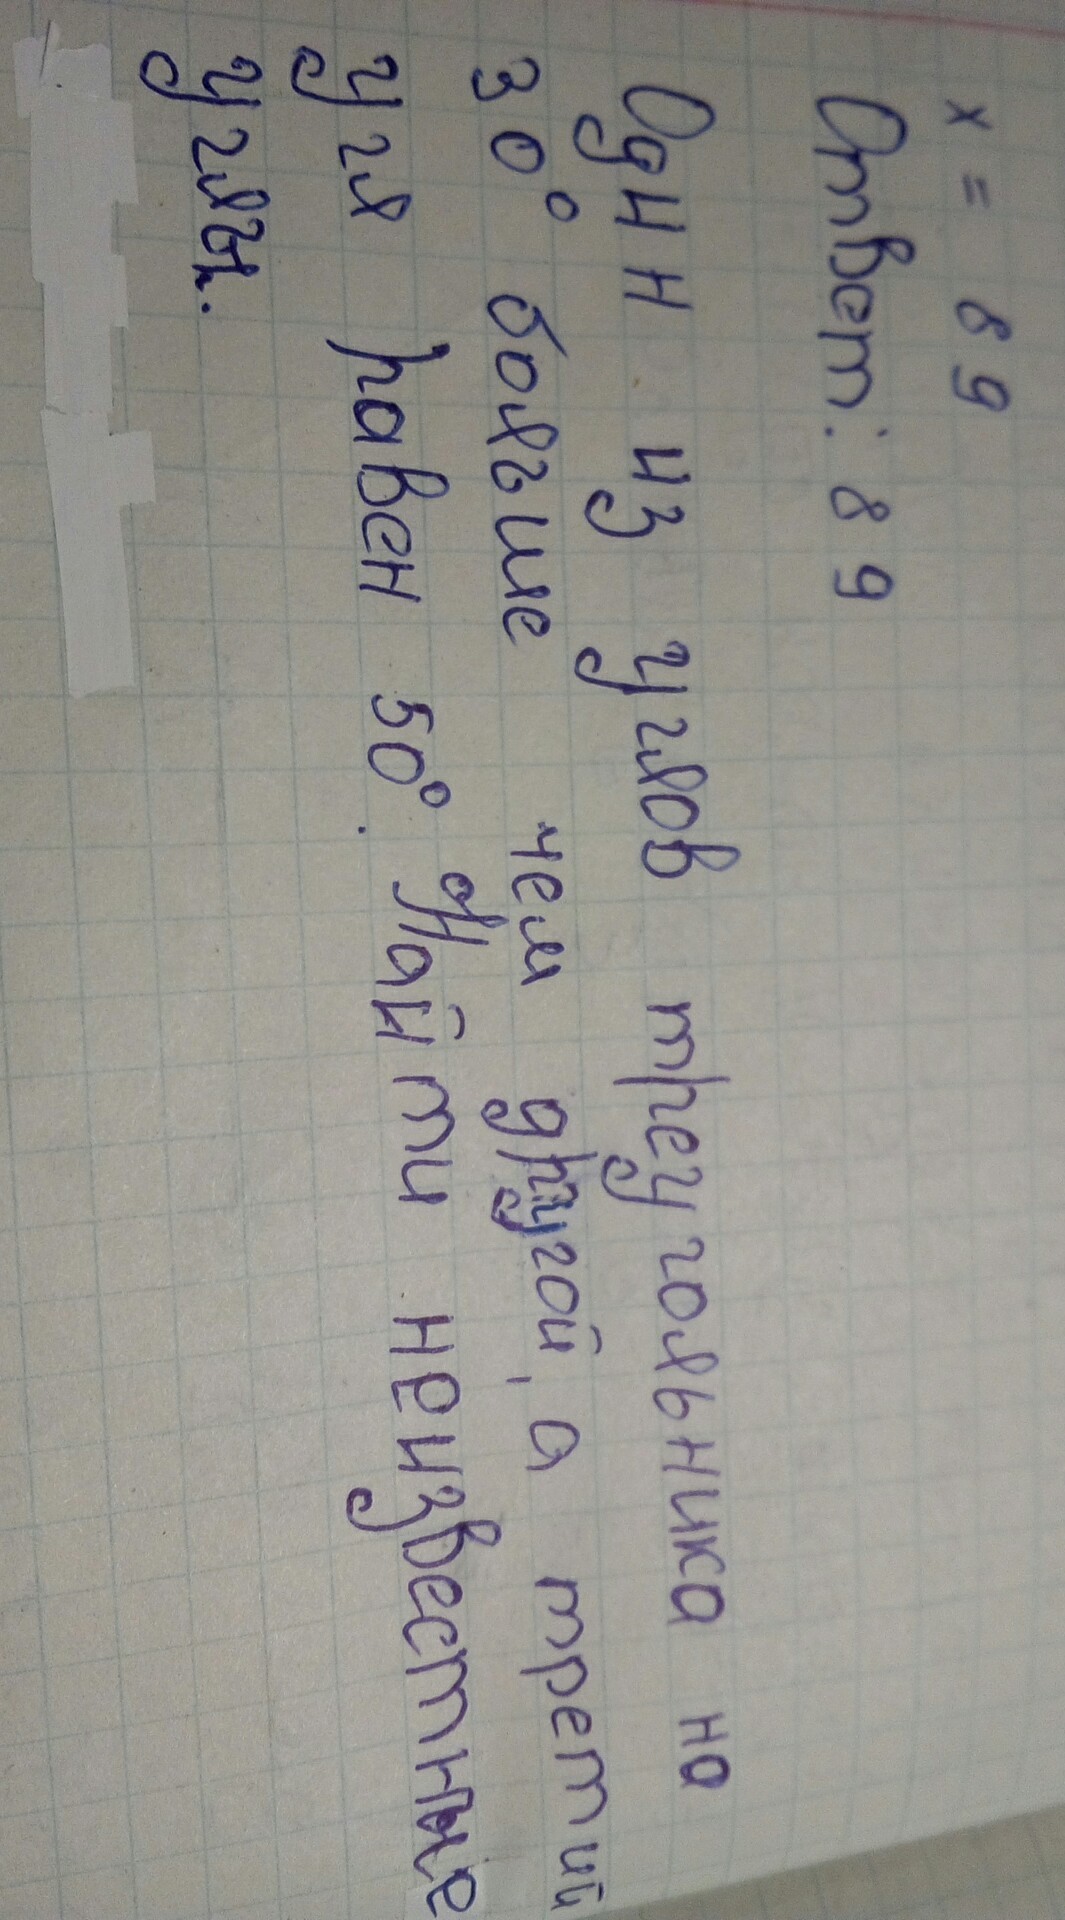 x = 89
Ответ: 89
Один из углов треугольника на
30° больше чем другой, а третий
угл равен 50°. Найти неизвестные
углы.